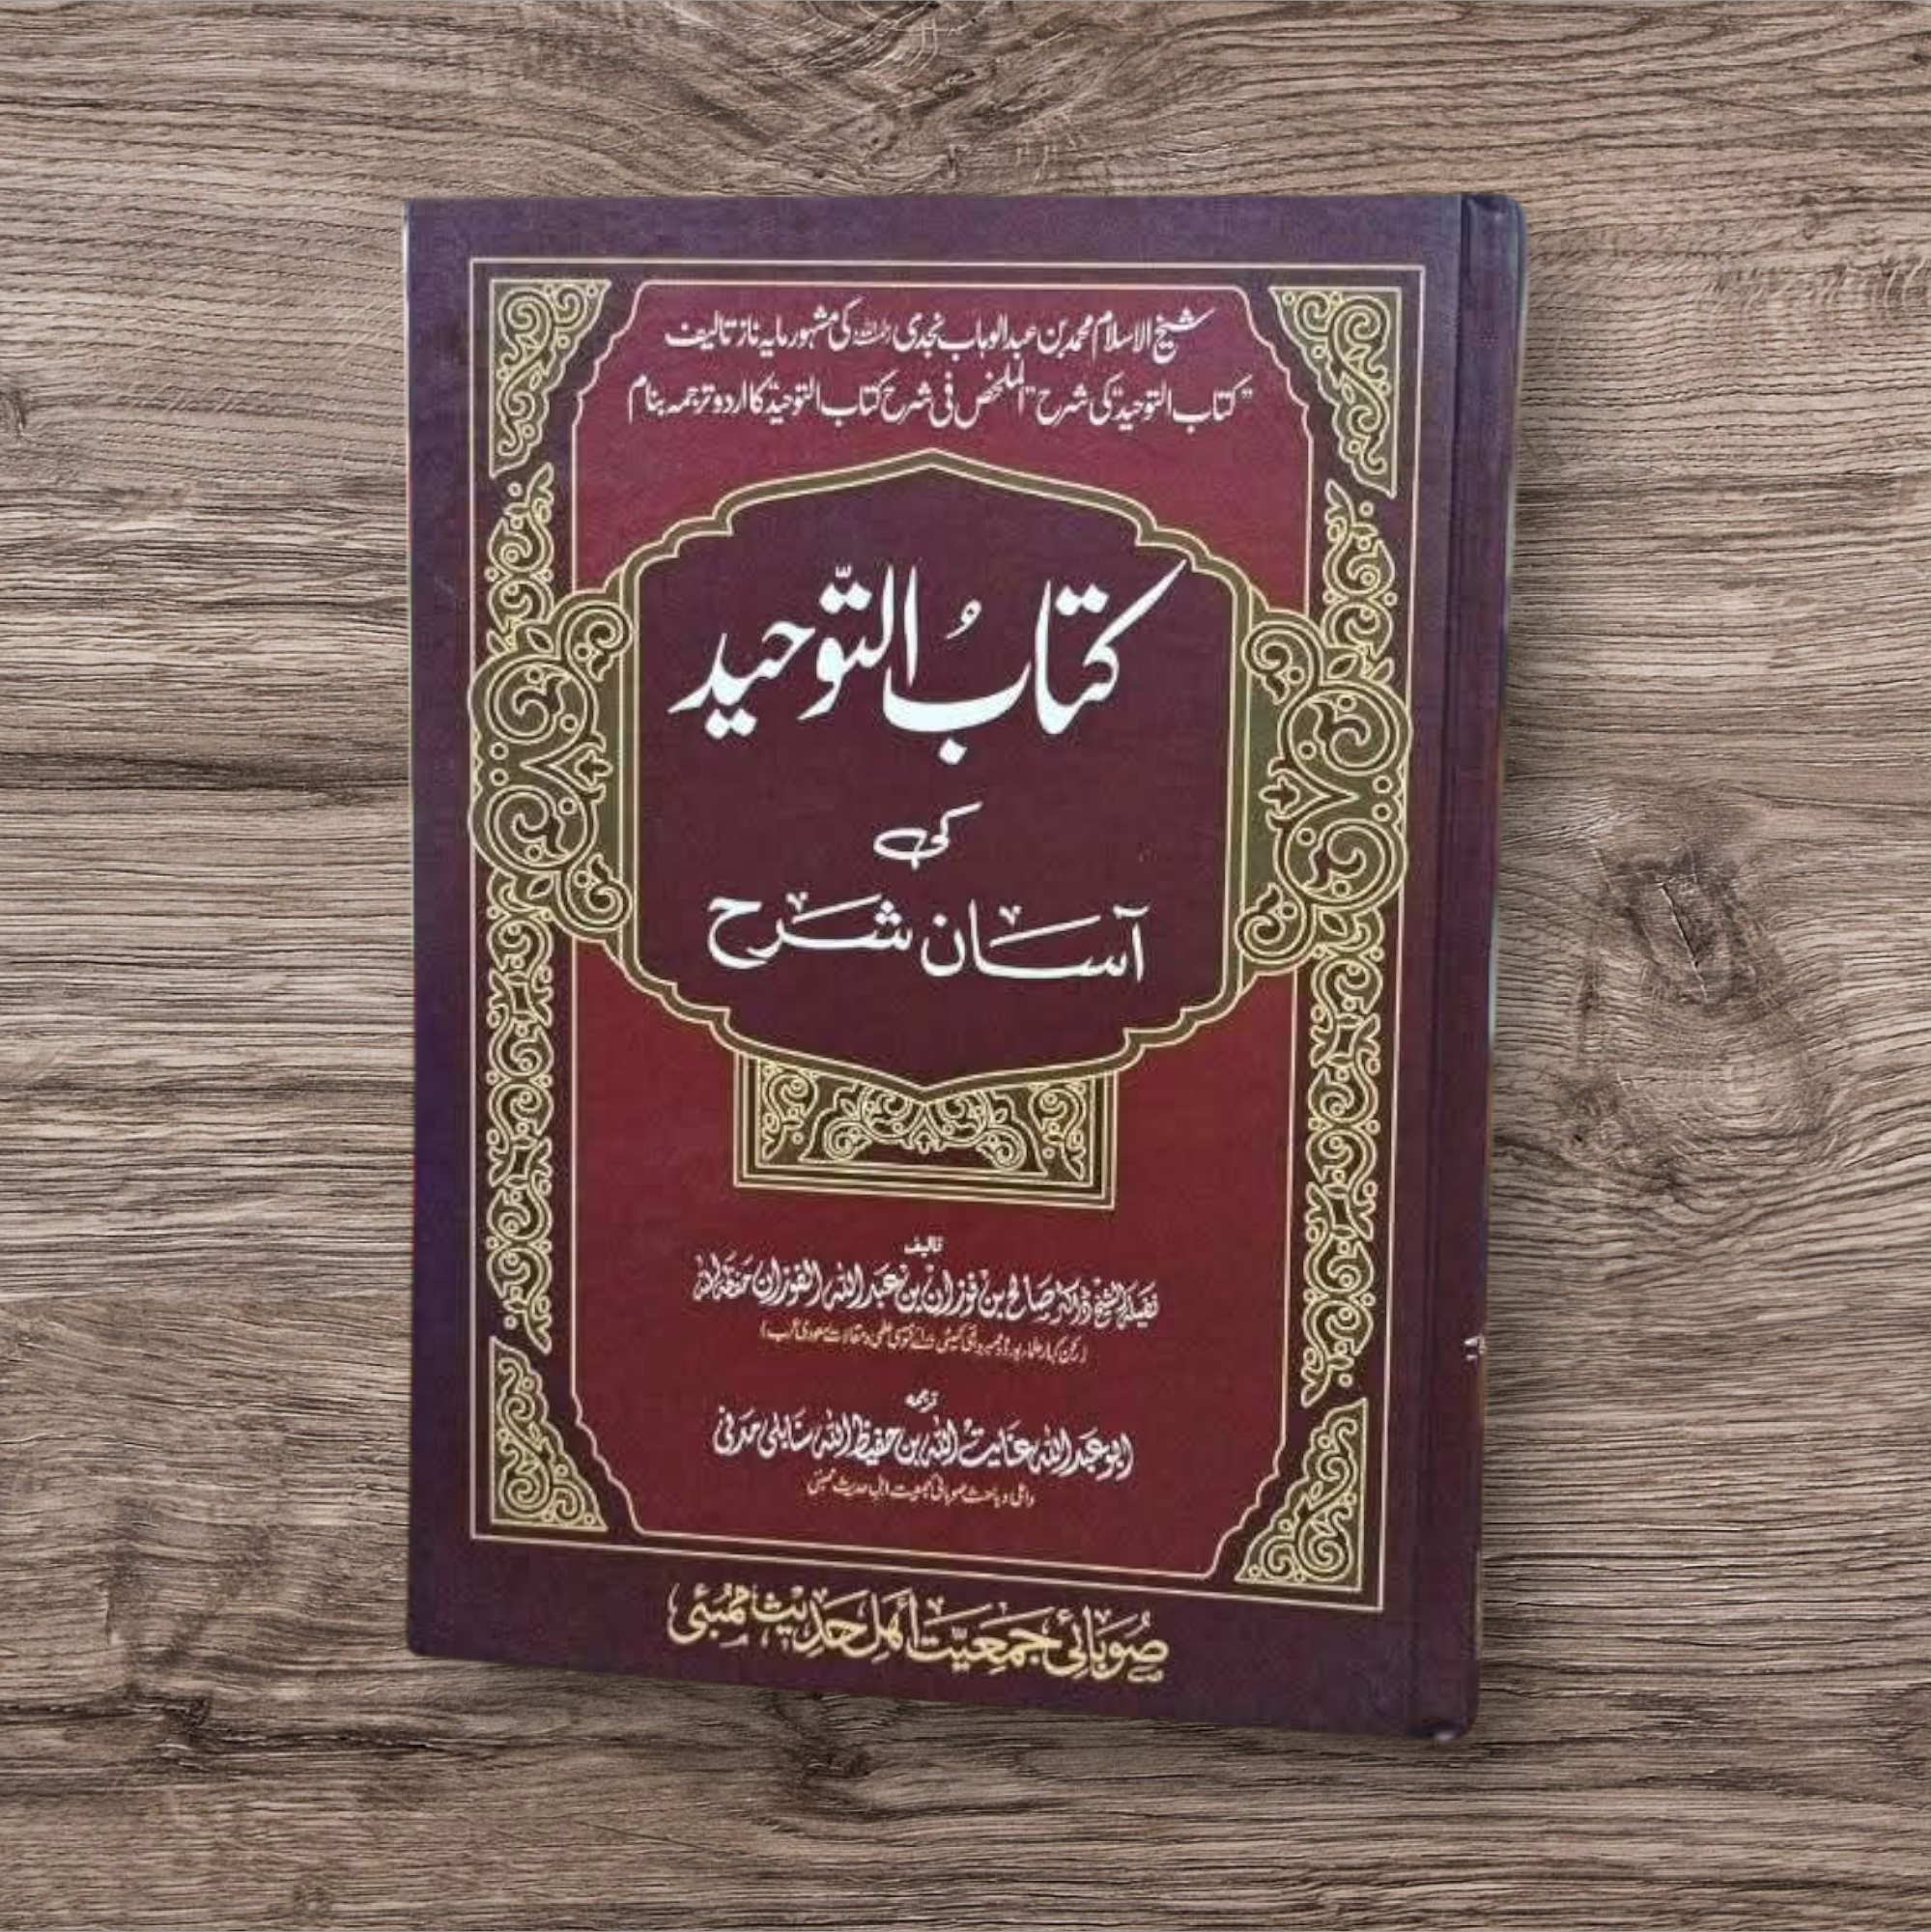 شیخ الاسلام محمد بن عبدالوہاب نجدی رحمہ اللہ کی مشہور مایہ ناز تالیف
"کتاب التوحید" کی شرح "الملخص فی شرح کتاب التوحید" کا اردو ترجمہ بنام
کتابُ التّوحید
کی
آسان شرح
تالیف
فضیلۃ الشیخ ڈاکٹر صالح بن فوزان بن عبد اللہ الفوزان حفظہ اللہ
(رکن کبار علماء بورڈ و ممبر دائمی کمیٹی برائے فتویٰ علمی و مقالات سعودی عرب)
ترجمہ
ابو عبد اللہ عنایت اللہ بن حفیظ اللہ سنابلی مدنی
داعی و باحث صوبائی جمعیت اہل حدیث ممبئی
صُوبائی جمعیّت أھل حَدیث ممبئی